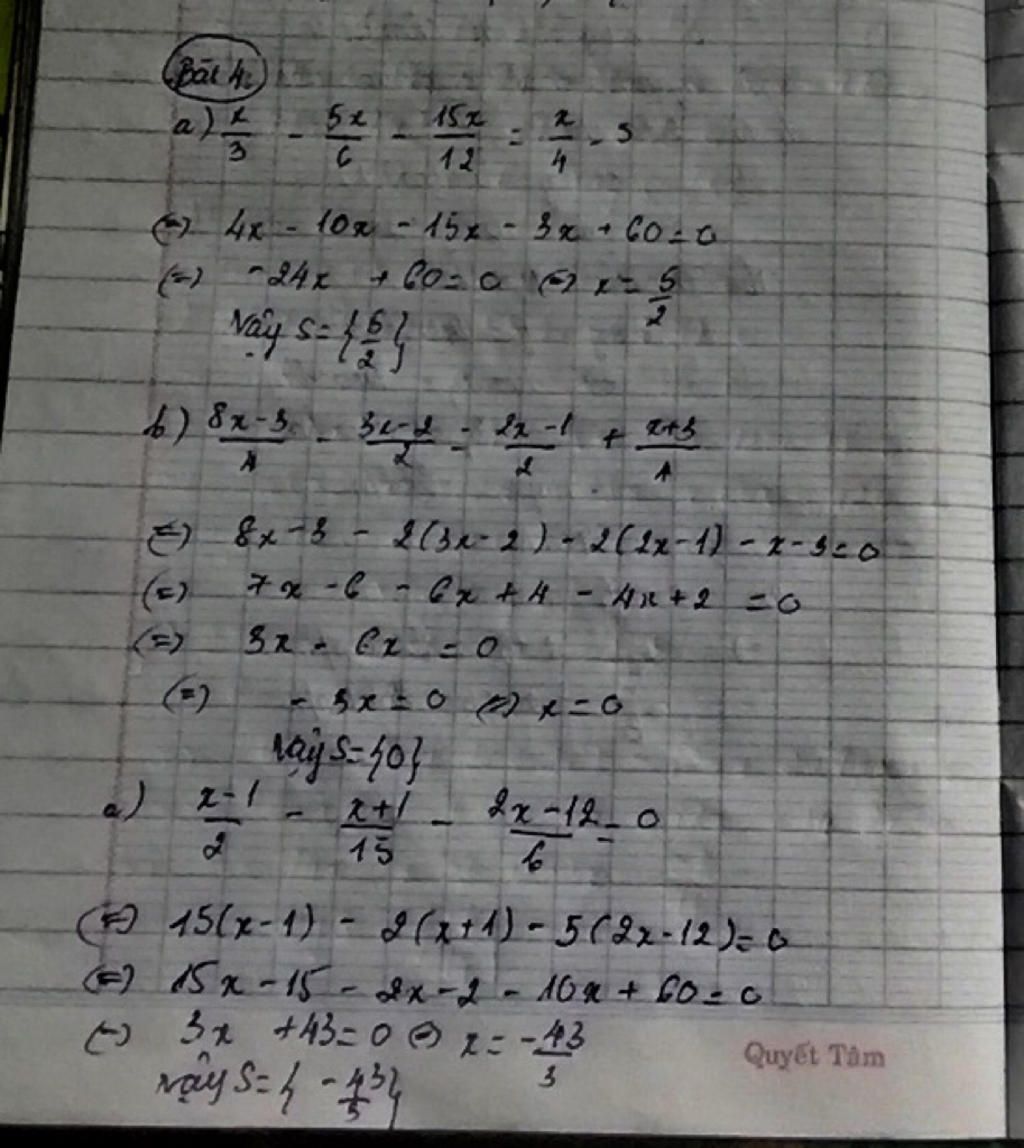 Bài 4:
a) x/3 - 5x/6 - 15x/12 = x/4 - 5
(=) 4x - 10x - 15x - 3x + 60 = 0
(=) -24x + 60 = 0 (=) x = 5/2
Vậy S = {5/2}
b) (8x-3)/4 - (3x-2)/2 = (2x-1)/2 + (x+3)/4
(=) 8x-3 - 2(3x-2) - 2(2x-1) - x-3 = 0
(=) 7x - 6 - 6x + 4 - 4x + 2 = 0
(=) 3x - 6x = 0
(=) - 3x = 0 (=) x = 0
Vậy S = {0}
c) (x-1)/2 - (x+1)/15 - (2x-12)/6 = 0
(=) 15(x-1) - 2(x+1) - 5(2x-12) = 0
(=) 15x - 15 - 2x - 2 - 10x + 60 = 0
(=) 3x + 43 = 0 (=) x = -43/3
Vậy S = {-43/3}
Quyết Tâm